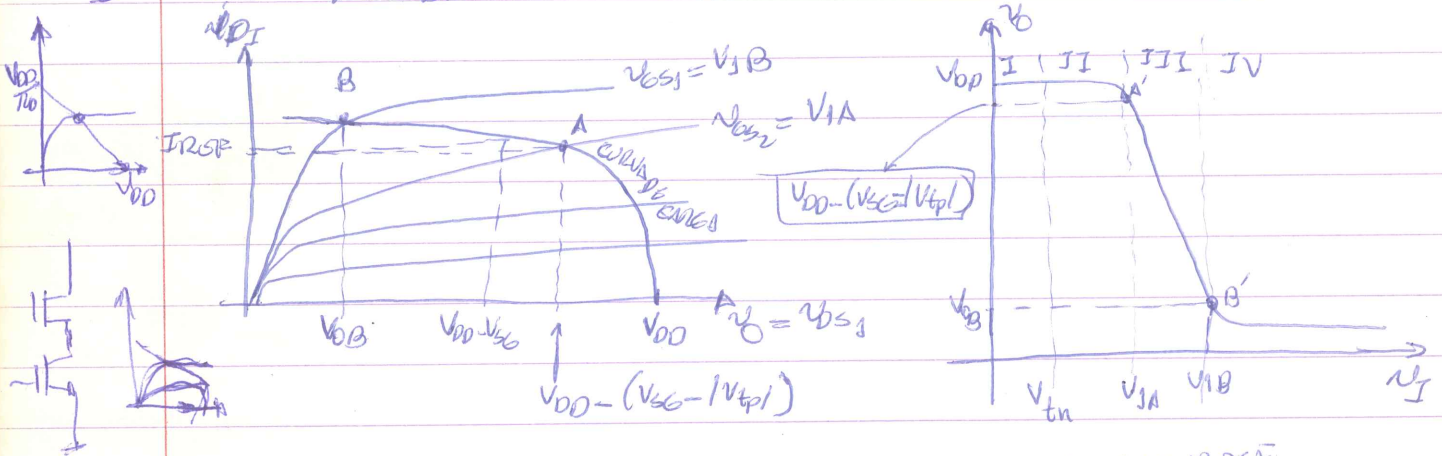 V_DD
V_DD
B
v_GS1 = V_IB
IREF
A
v_GS2 = V_IA
CURVA DE
CARGA
V_OB
V_DD-V_SG
V_DD
v_O = v_DS1
V_DD - (V_SG - |V_tp|)
v_O
I II III IV
A'
V_DD - (V_SG = |V_tp|)
V_OB
B'
V_tn
V_IA
V_IB
v_I